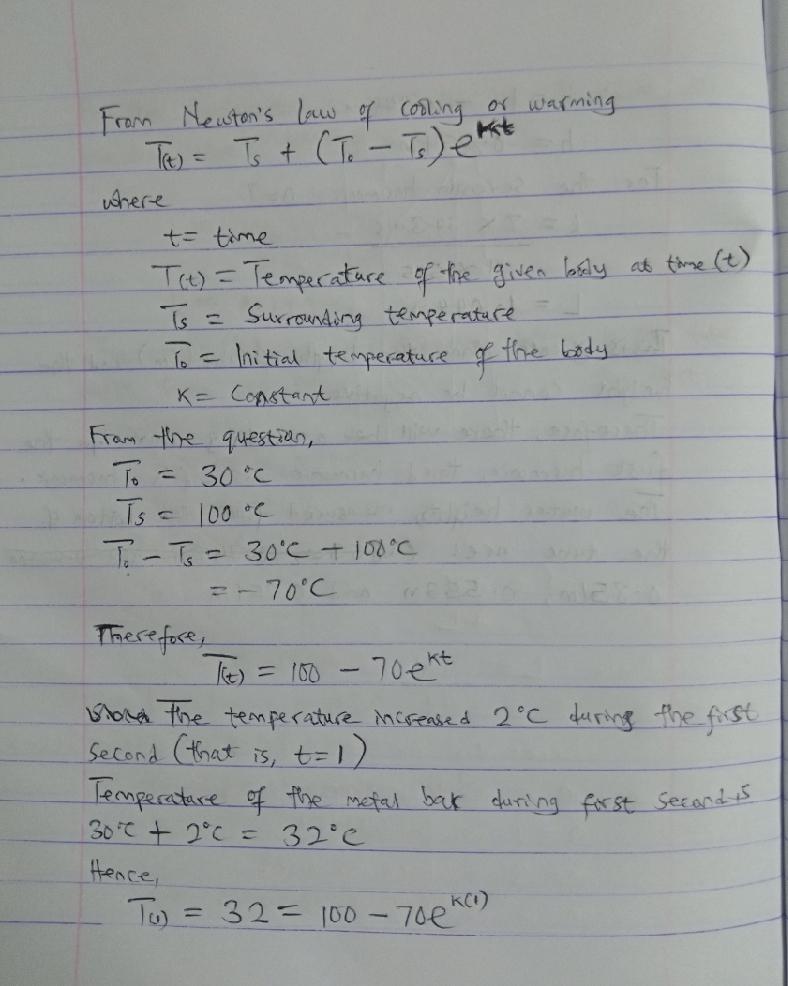 From Newton's law of cooling or warming
T(t) = Ts + (T₀ - Ts)e^kt
where
t = time
T(t) = Temperature of the given body at time (t)
Ts = Surrounding temperature
T₀ = Initial temperature of the body
K = Constant
From the question,
T₀ = 30°C
Ts = 100°C
T₀ - Ts = 30°C + 100°C
= - 70°C
Therefore,
T(t) = 100 - 70e^kt
The temperature increased 2°C during the first
second (that is, t=1)
Temperature of the metal bar during first second is
30°C + 2°C = 32°C
Hence,
T(1) = 32 = 100 - 70e^K(1)